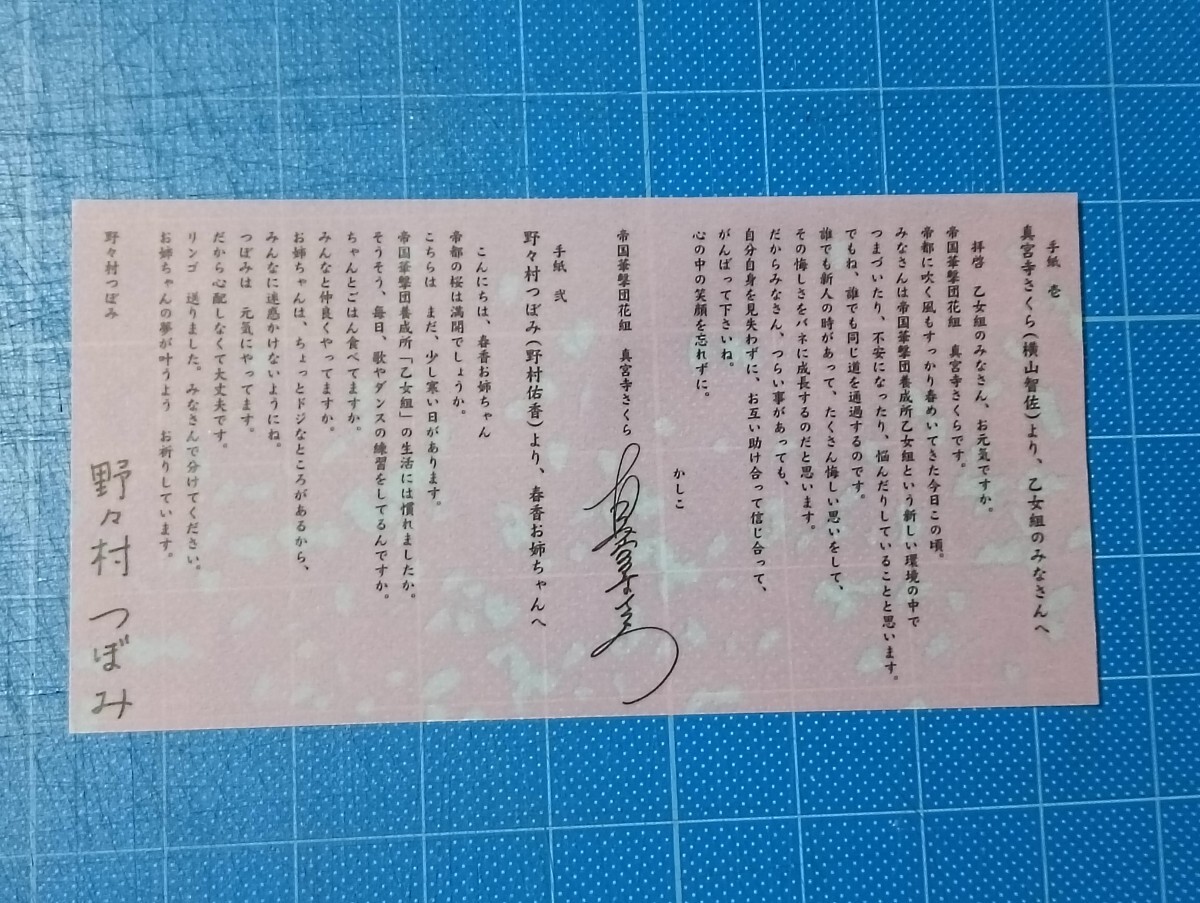 手紙 壱
真宮寺さくら(横山智佐)より、乙女組のみなさんへ
拝啓 乙女組のみなさん、お元気ですか。
帝国華撃団花組 真宮寺さくらです。
帝都に吹く風もすっかり春めいてきた今日この頃。
みなさんは帝国華撃団養成所乙女組という新しい環境の中で
つまづいたり、不安になったり、悩んだりしていることと思います。
でもね、誰でも同じ道を通過するのです。
誰でも新人の時があって、たくさん悔しい思いをして、
その悔しさをバネに成長するのだと思います。
だからみなさん、つらい事があっても、
自分自身を見失わずに、お互い助け合って信じ合って、
がんばって下さいね。
心の中の笑顔を忘れずに。
かしこ
帝国華撃団花組 真宮寺さくら
手紙 弐
野々村つぼみ(野村佑香)より、春香お姉ちゃんへ
こんにちは、春香お姉ちゃん
帝都の桜は満開でしょうか。
こちらは まだ、少し寒い日があります。
帝国華撃団養成所「乙女組」の生活には慣れましたか。
そうそう、毎日、歌やダンスの練習をしてるんですか。
ちゃんとごはん食べてますか。
みんなと仲良くやってますか。
お姉ちゃんは、ちょっとドジなところがあるから、
みんなに迷惑かけないようにね。
つぼみは 元気にやってます。
だから心配しなくて大丈夫です。
リンゴ 送りました。みなさんで分けてください。
お姉ちゃんの夢が叶うよう お祈りしています。
野々村つぼみ
野々村 つぼみ